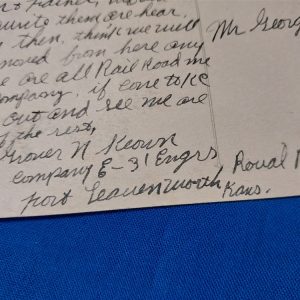 write them, are hear
then, think we will
moved from here any
e are all Rail Road me
company. if come to KC
out and see me are
the rest,
Grover N Keown
Company E-31 Engrs
Fort Leavenworth
Kans.
Mr Georg
Roual